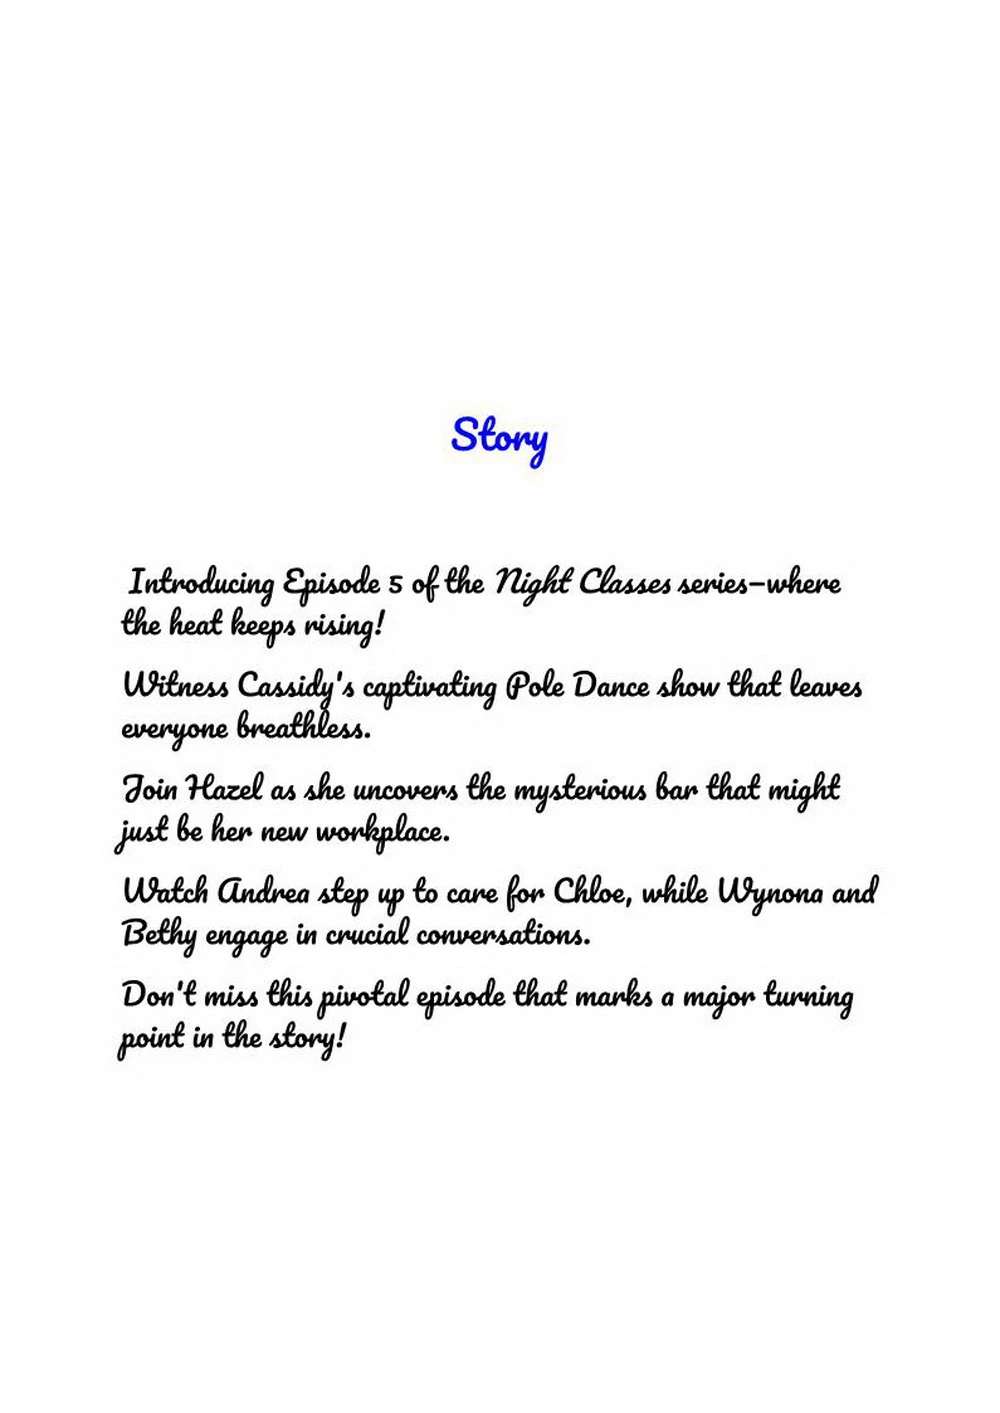 Story
Introducing Episode 5 of the Night Classes series—where
the heat keeps rising!
Witness Cassidy's captivating Pole Dance show that leaves
everyone breathless.
Join Hazel as she uncovers the mysterious bar that might
just be her new workplace.
Watch Andrea step up to care for Chloe, while Wynona and
Bethy engage in crucial conversations.
Don't miss this pivotal episode that marks a major turning
point in the story!